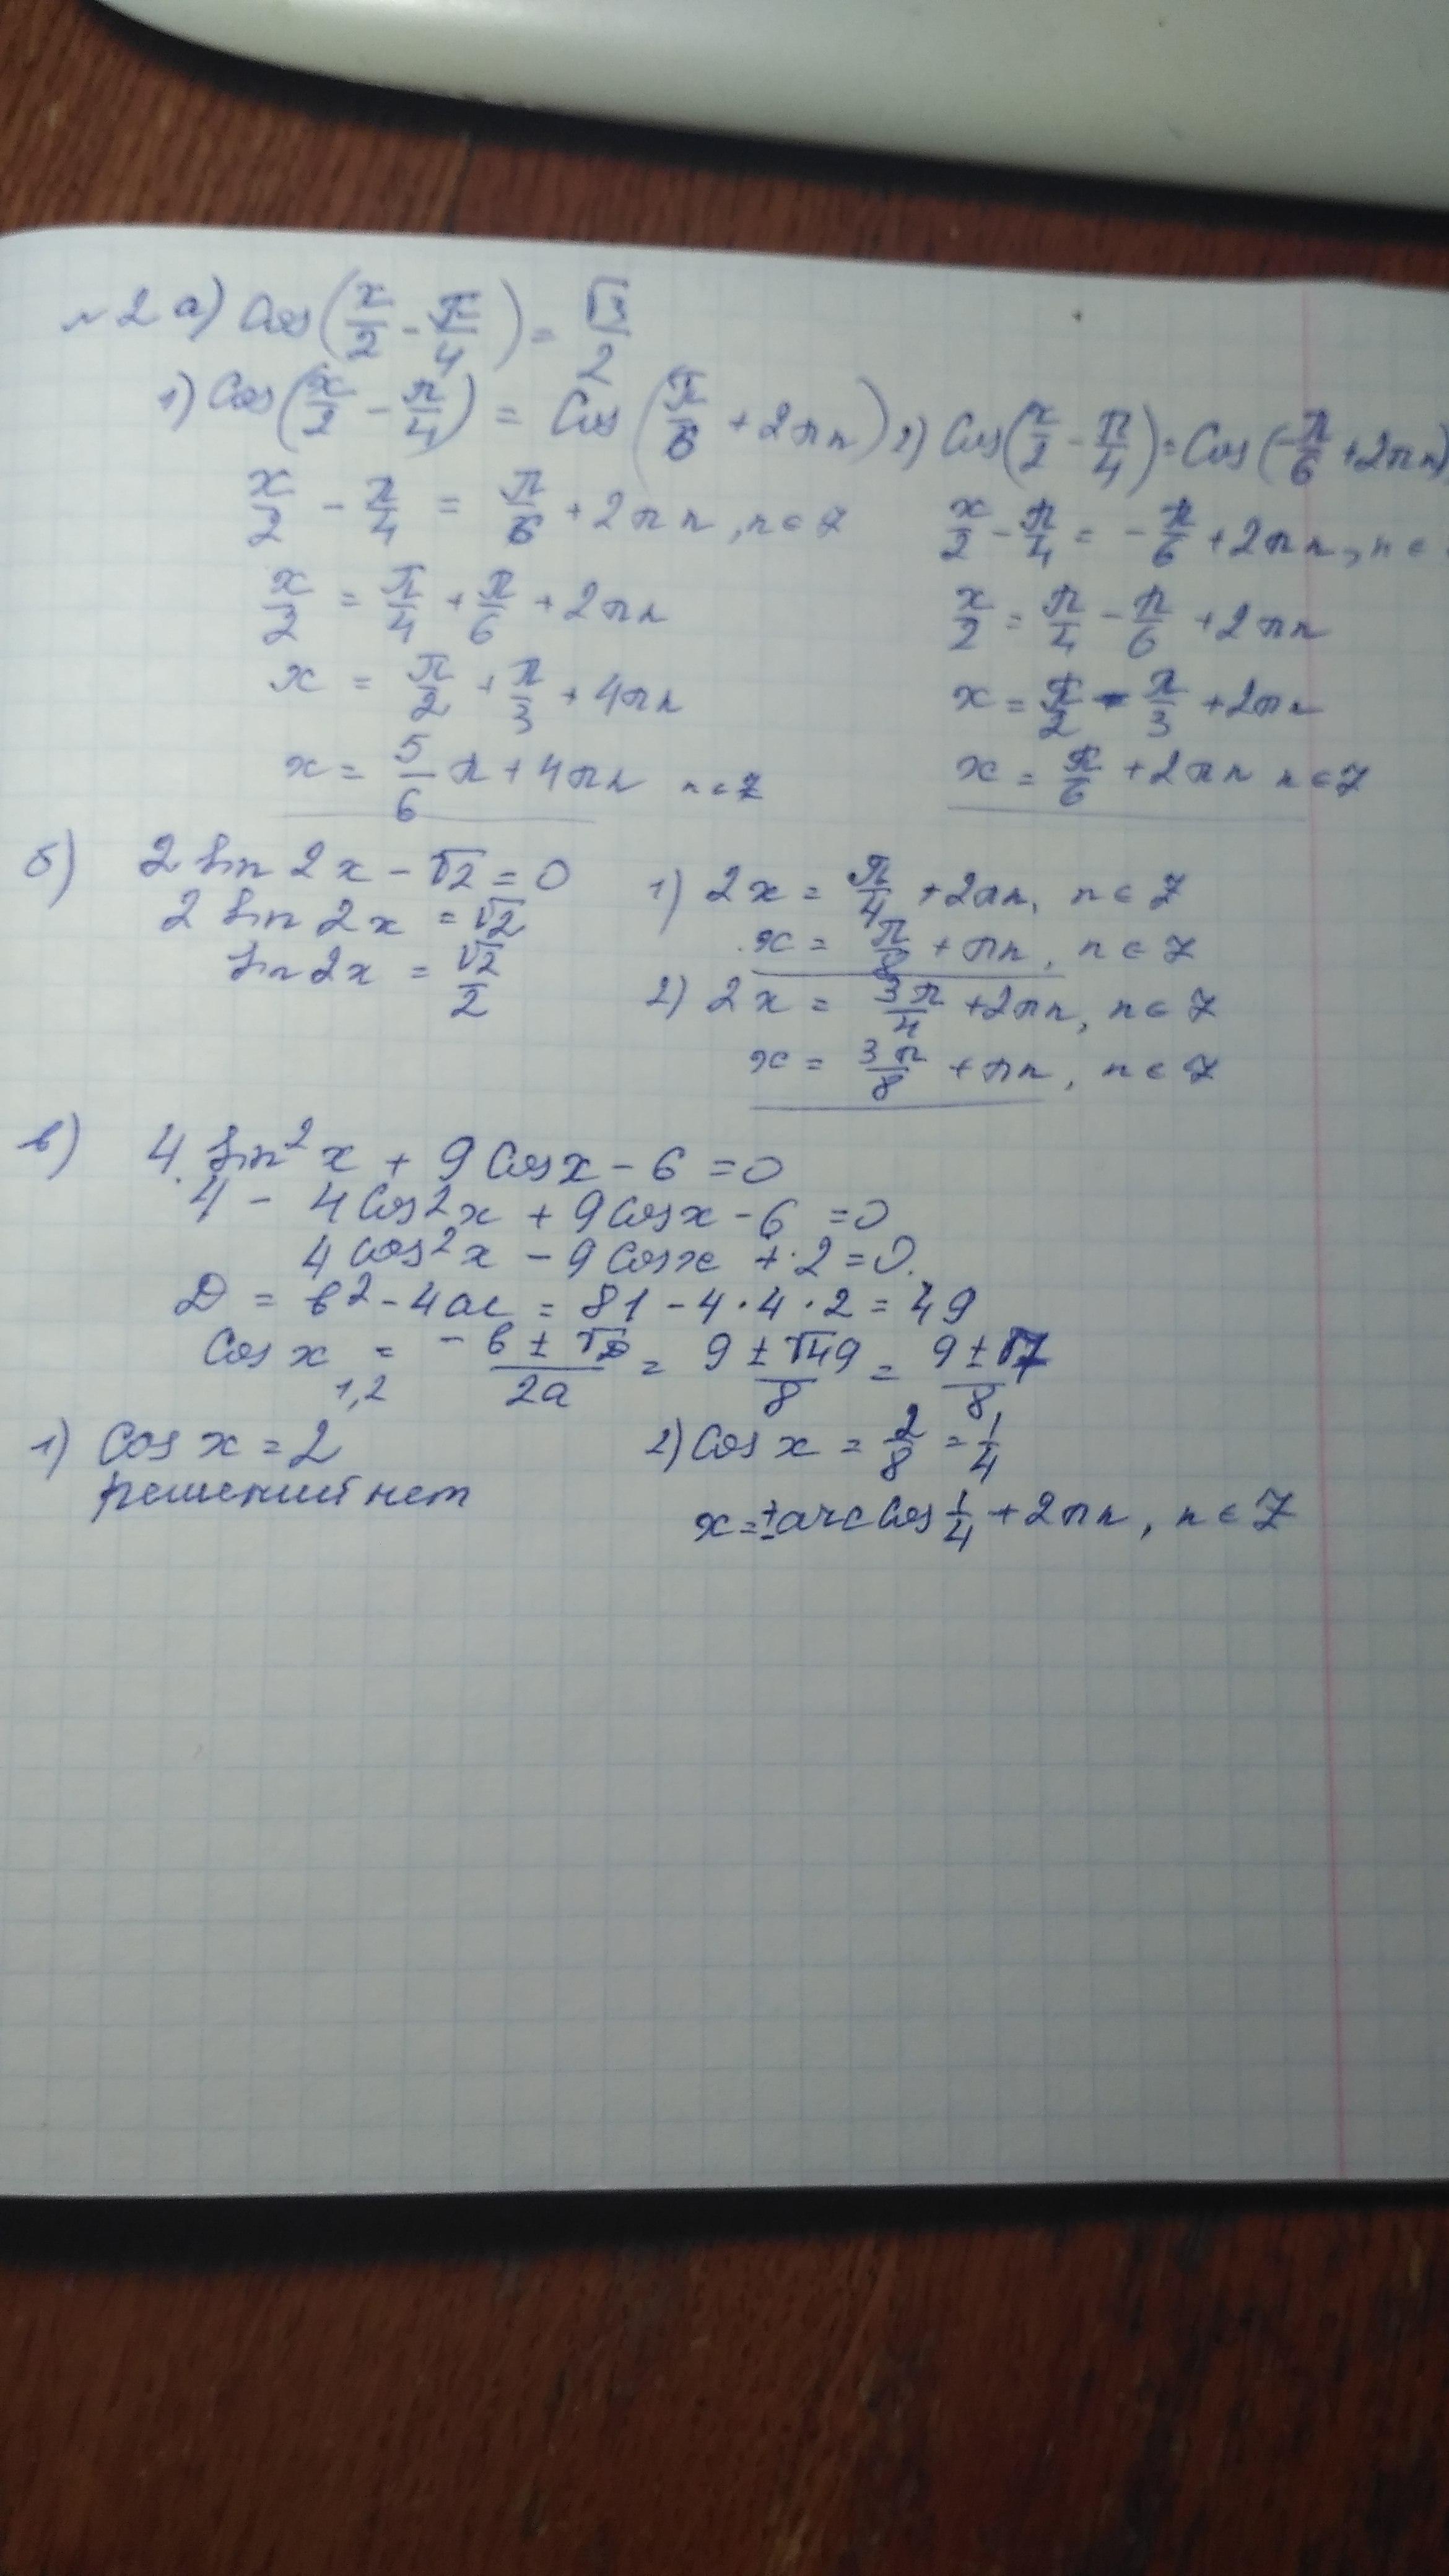 №2 а) Cos(x/2 - π/4) = √3/2
1) Cos(x/2 - π/4) = Cos(π/6 + 2πn) 2) Cos(x/2 - π/4) = Cos(-π/6 + 2πn)
x/2 - π/4 = π/6 + 2πn, n∈Z
x/2 - π/4 = -π/6 + 2πn, n∈
x/2 = π/4 + π/6 + 2πn
x/2 = π/4 - π/6 + 2πn
x = π/2 + π/3 + 4πn
x = π/2 - π/3 + 2πn
x = 5/6 π + 4πn n∈Z
x = π/6 + 2πn n∈Z
б) 2 sin 2x - √2 = 0
2 sin 2x = √2
sin 2x = √2/2
1) 2x = π/4 + 2πn, n∈Z
x = π/8 + πn, n∈Z
2) 2x = 3π/4 + 2πn, n∈Z
x = 3π/8 + πn, n∈Z
в) 4 sin²x + 9 Cos x - 6 = 0
4 - 4 Cos²x + 9 Cos x - 6 = 0
4 cos²x - 9 Cos x + 2 = 0.
D = в² - 4ac = 81 - 4·4·2 = 49
Cos x 1,2 = (-в ± √D)/2a = (9 ± √49)/8 = (9 ± √7)/8
1) Cos x = 2
решений нет
2) Cos x = 2/8 = 1/4
x = ± arc Cos 1/4 + 2πn, n∈Z